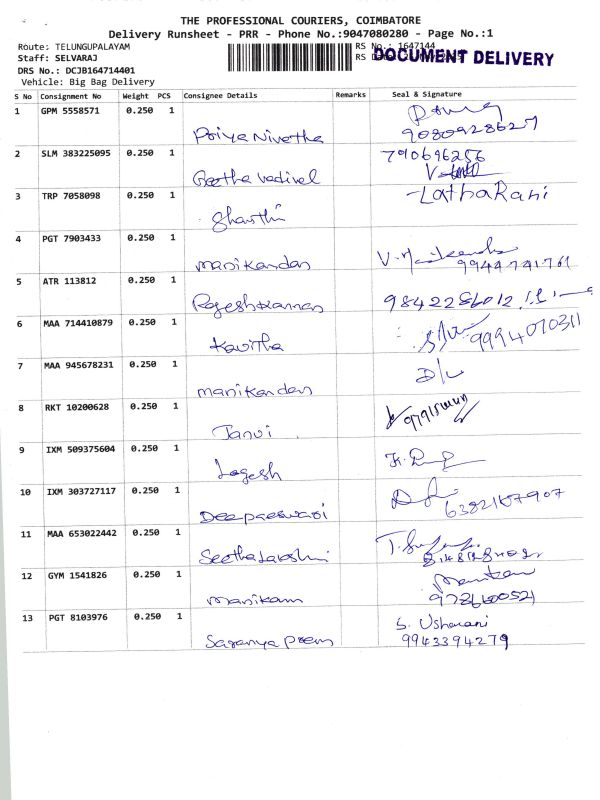 THE PROFESSIONAL COURIERS, COIMBATORE
Delivery Runsheet - PRR - Phone No.:9047080280 - Page No.:1
Route: TELUNGUPALAYAM RS No.: 1647144
Staff: SELVARAJ RS DOCUMENT DELIVERY
DRS No.: DCJB164714401
Vehicle: Big Bag Delivery
S No Consignment No Weight PCS Consignee Details Remarks Seal & Signature
1 GPM 5558571 0.250 1
Priya Nivetha 9080928627
2 SLM 383225095 0.250 1 790696256
Geetha vadivel
3 TRP 7058098 0.250 1 LathaRani
Shanthi
4 PGT 7903433 0.250 1
manikandan 9944741761
5 ATR 113812 0.250 1
Rajeshkannan 9842286012
6 MAA 714410879 0.250 1
Kavitha 9994070311
7 MAA 945678231 0.250 1
manikandan D/L
8 RKT 10200628 0.250 1
Janvi
9 IXM 509375604 0.250 1
Logesh
10 IXM 303727117 0.250 1
Deepaeswari 6382167907
11 MAA 653022442 0.250 1
Seethalakshmi
12 GYM 1541826 0.250 1
manikam 9786600521
13 PGT 8103976 0.250 1 S. Usharani
Saranya prem 9943394279